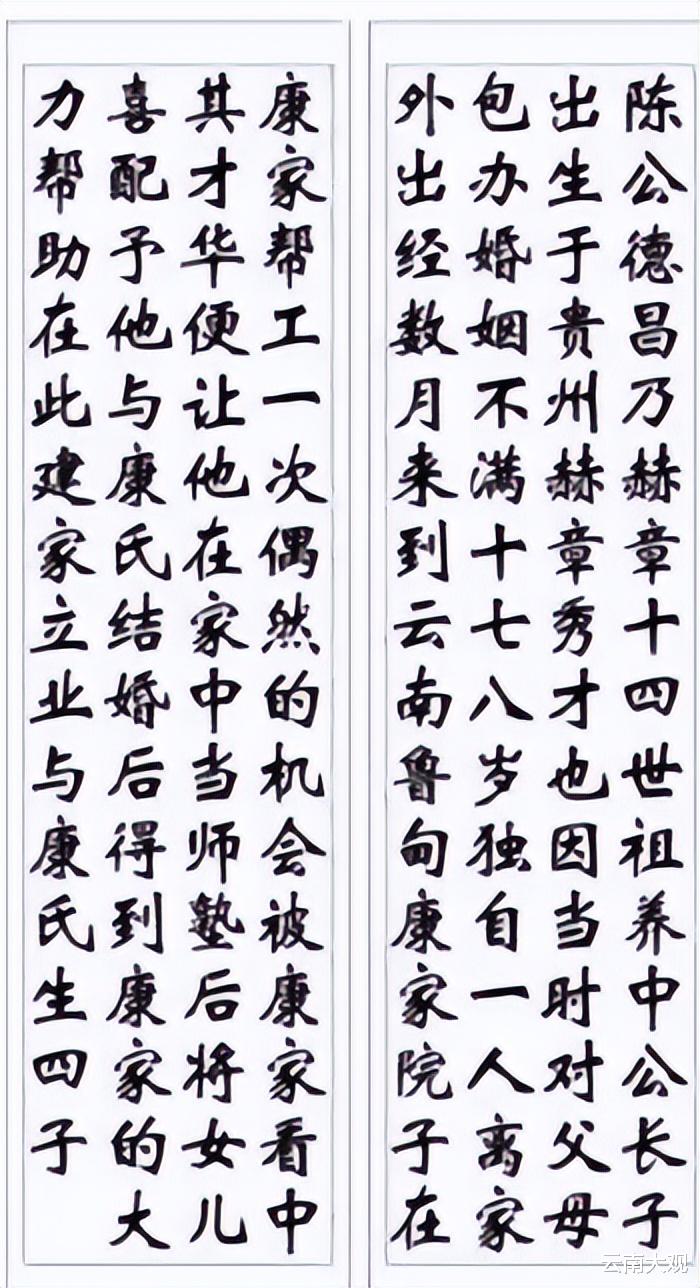 陈公德昌乃赫章十四世祖养中公长子
出生于贵州赫章秀才也因当时对父母
包办婚姻不满十七八岁独自一人离家
外出经数月来到云南鲁甸康家院子在
康家帮工一次偶然的机会被康家看中
其才华便让他在家中当师塾后将女儿
喜配予他与康氏结婚后得到康家的大
力帮助在此建家立业与康氏生四子
云南大观